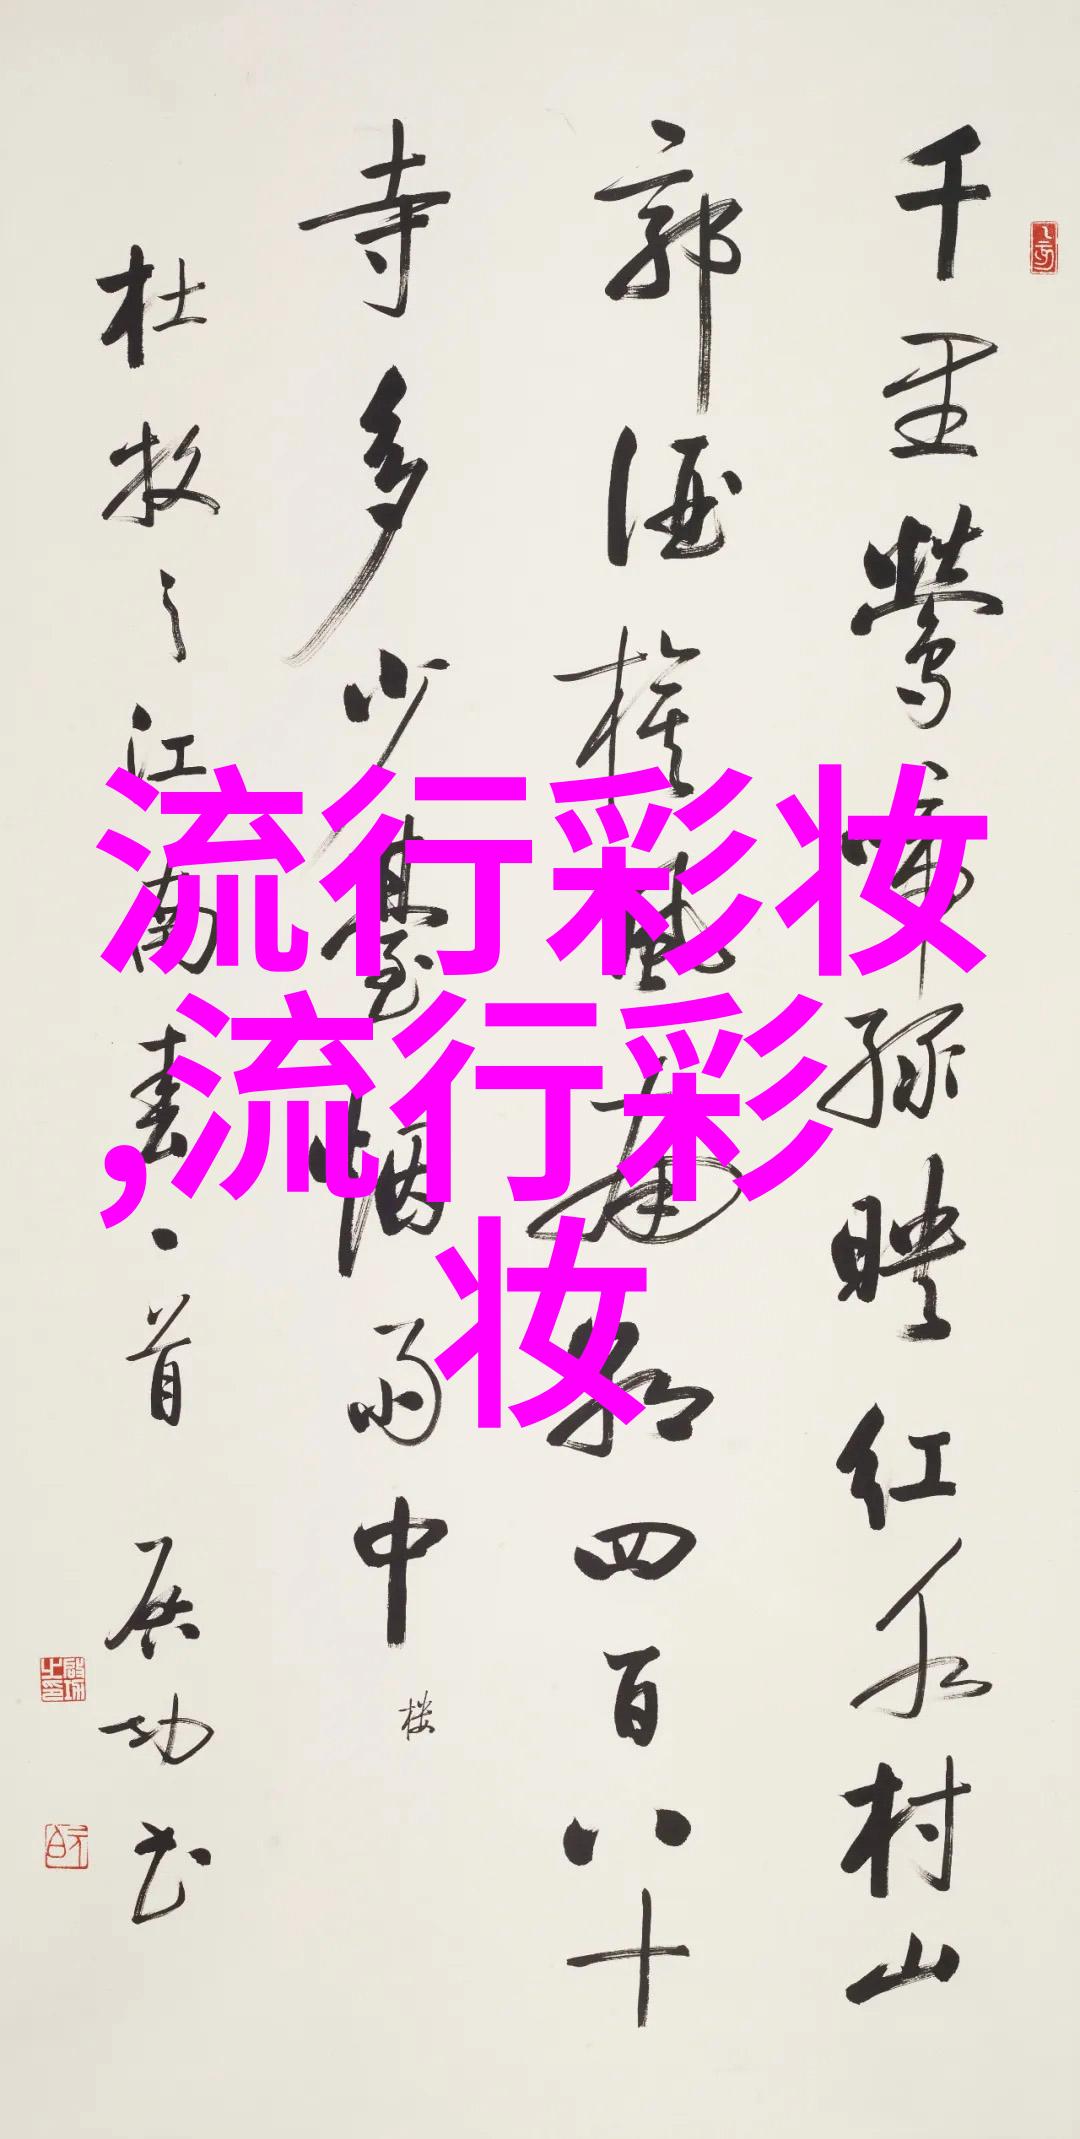 千里鶯啼绿映红水村山
郭酒旗風南朝四百八十
寺多少臺烟雨中
楼
杜牧之江南春一首 启功书
流行彩妆
,流行彩
妆